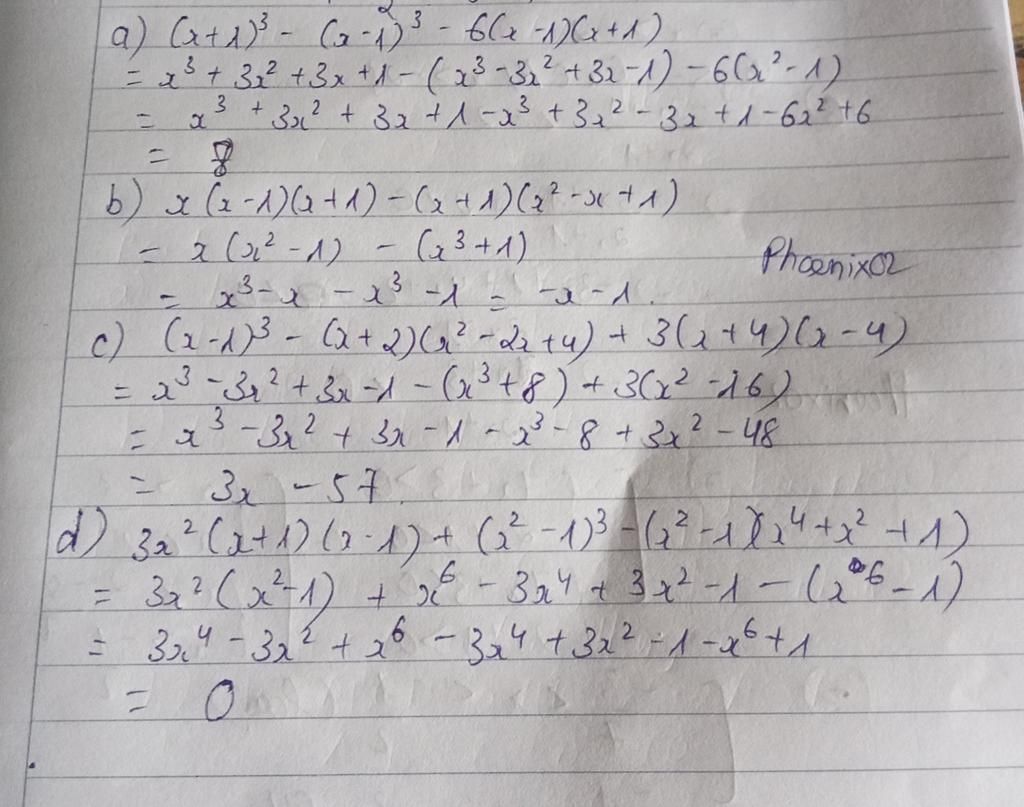 a) (x+1)³ - (x-1)³ - 6(x-1)(x+1)
= x³ + 3x² + 3x + 1 - (x³ - 3x² + 3x - 1) - 6(x² - 1)
= x³ + 3x² + 3x + 1 - x³ + 3x² - 3x + 1 - 6x² + 6
= 8
b) x(x-1)(x+1) - (x+1)(x² - x + 1)
= x(x² - 1) - (x³ + 1)
Phoenix02
= x³ - x - x³ - 1 = -x - 1.
c) (x-1)³ - (x+2)(x² - 2x + 4) + 3(x+4)(x-4)
= x³ - 3x² + 3x - 1 - (x³ + 8) + 3(x² - 16)
= x³ - 3x² + 3x - 1 - x³ - 8 + 3x² - 48
= 3x - 57.
d) 3x²(x+1)(x-1) + (x² - 1)³ - (x² - 1)(x⁴ + x² + 1)
= 3x²(x² - 1) + x⁶ - 3x⁴ + 3x² - 1 - (x⁶ - 1)
= 3x⁴ - 3x² + x⁶ - 3x⁴ + 3x² - 1 - x⁶ + 1
= 0